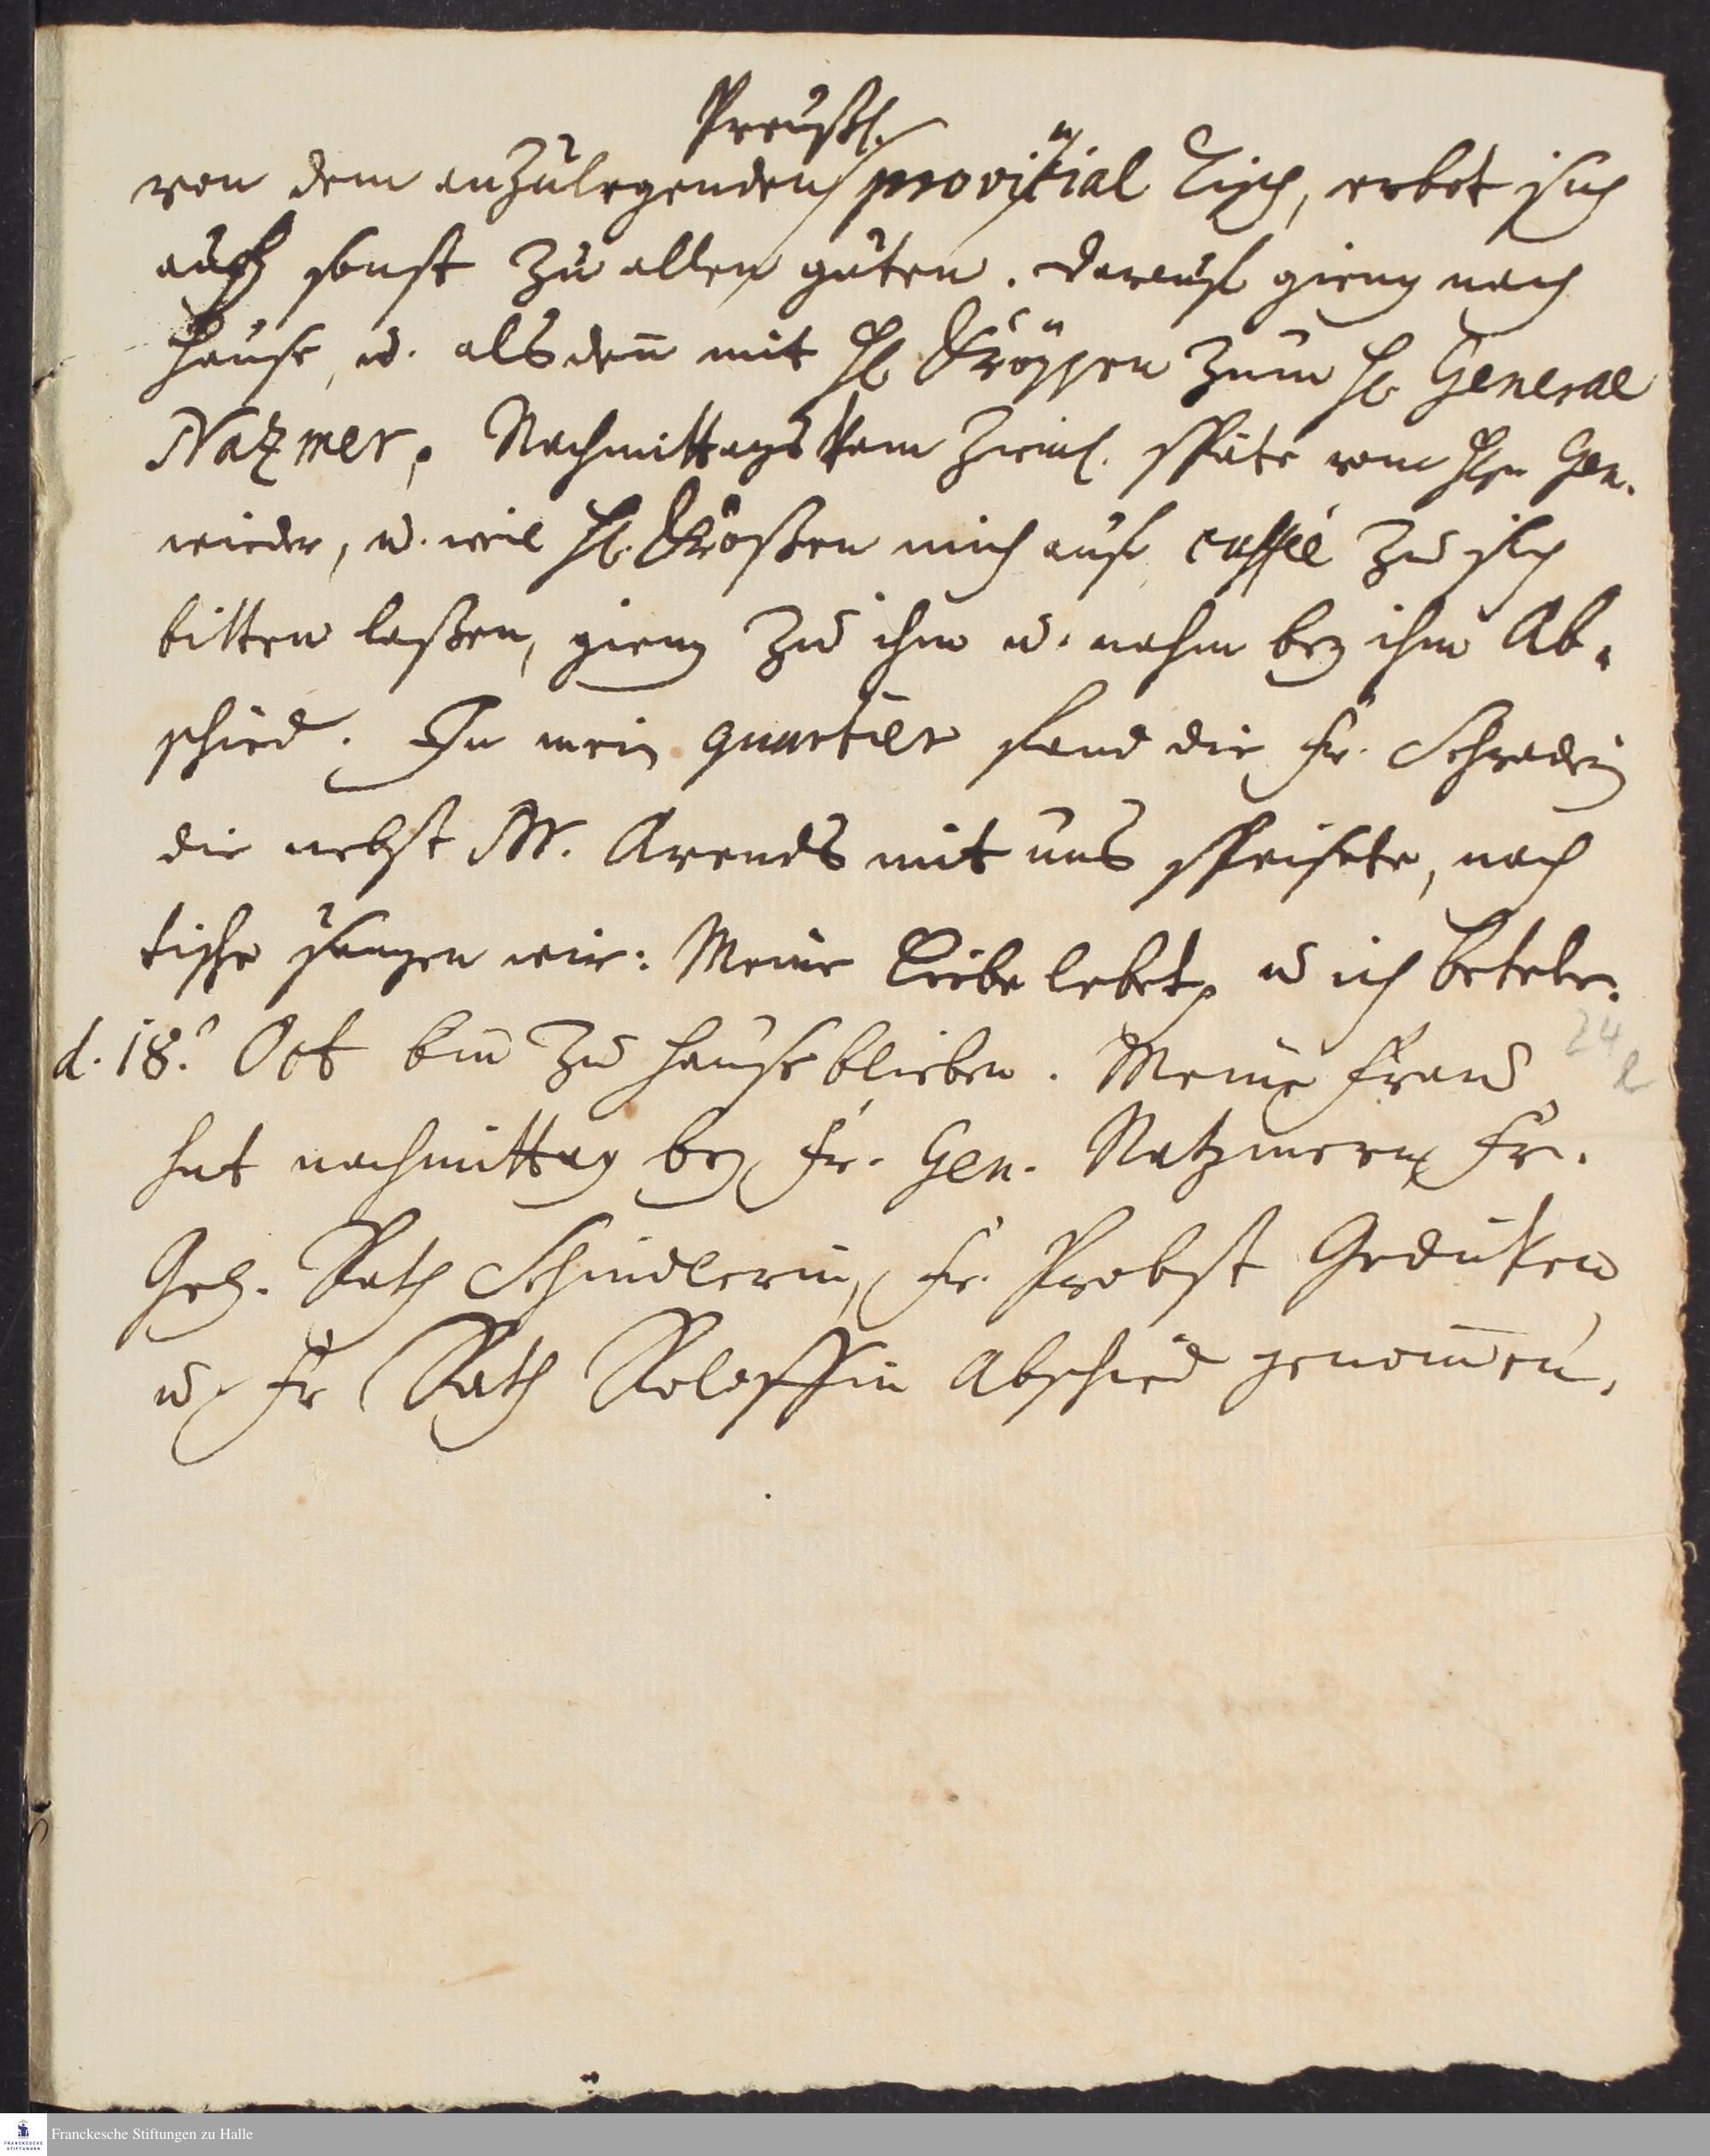 Preußl.
von dem anzulegenden provincial Tisch, erbot sich
auch sonst zu allen guten. Darauf gieng nach
Hause, u. alsdeñ mit H. Kröppen zum H. General
Natzmer. Nachmittags kam zieml. späte vom Hrn Gen.
wieder, u. weil H. mich auf caffée zu sich
bitten laßen, gieng zu ihm u. nahm bey ihm Ab-
schied. In mein quartier fand die Fr. Schradin
die nebst M. Arends mit uns speisete, nach
tische sungen wir: Meine Liebe lebet u ich
d. 18. Oct biñ zu hause blieben. Meine Frau
hat nachmittag bey Fr. Gen. Natzmern, Fr.
Geh. Rath Schindlerin, Fr. Probst Gedicken
u. Fr Rath Abschied genom̄en.
24
Franckesche Stiftungen zu Halle
FRANCKESCHE
STIFTUNGEN